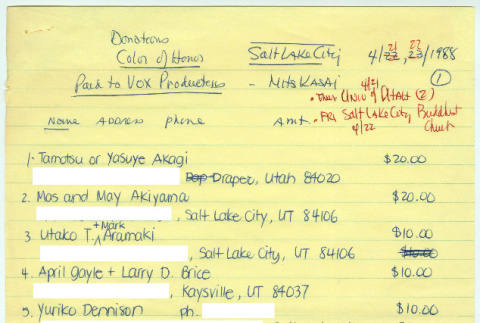 Donations
Color of Honor Salt Lake City 4/22, 23/1988
21 22
Paid to Vox Productions - Mits KASAI 4/21 1
• Thur Univ of Utah (2)
Name Address phone Amt. • FRI Salt Lake City Buddhist Church
4/22
1. Tamotsu or Yasuye Akagi $20.00
Draper, Utah 84020
2. Mas and May Akiyama $20.00
, Salt Lake City, UT 84106
+ Mark
3. Utako T. Aramaki $10.00
, Salt Lake City, UT 84106 $10.00
4. April Gayle + Larry D. Brice $10.00
, Kaysville, UT 84037
5. Yuriko Dennison ph. $10.00